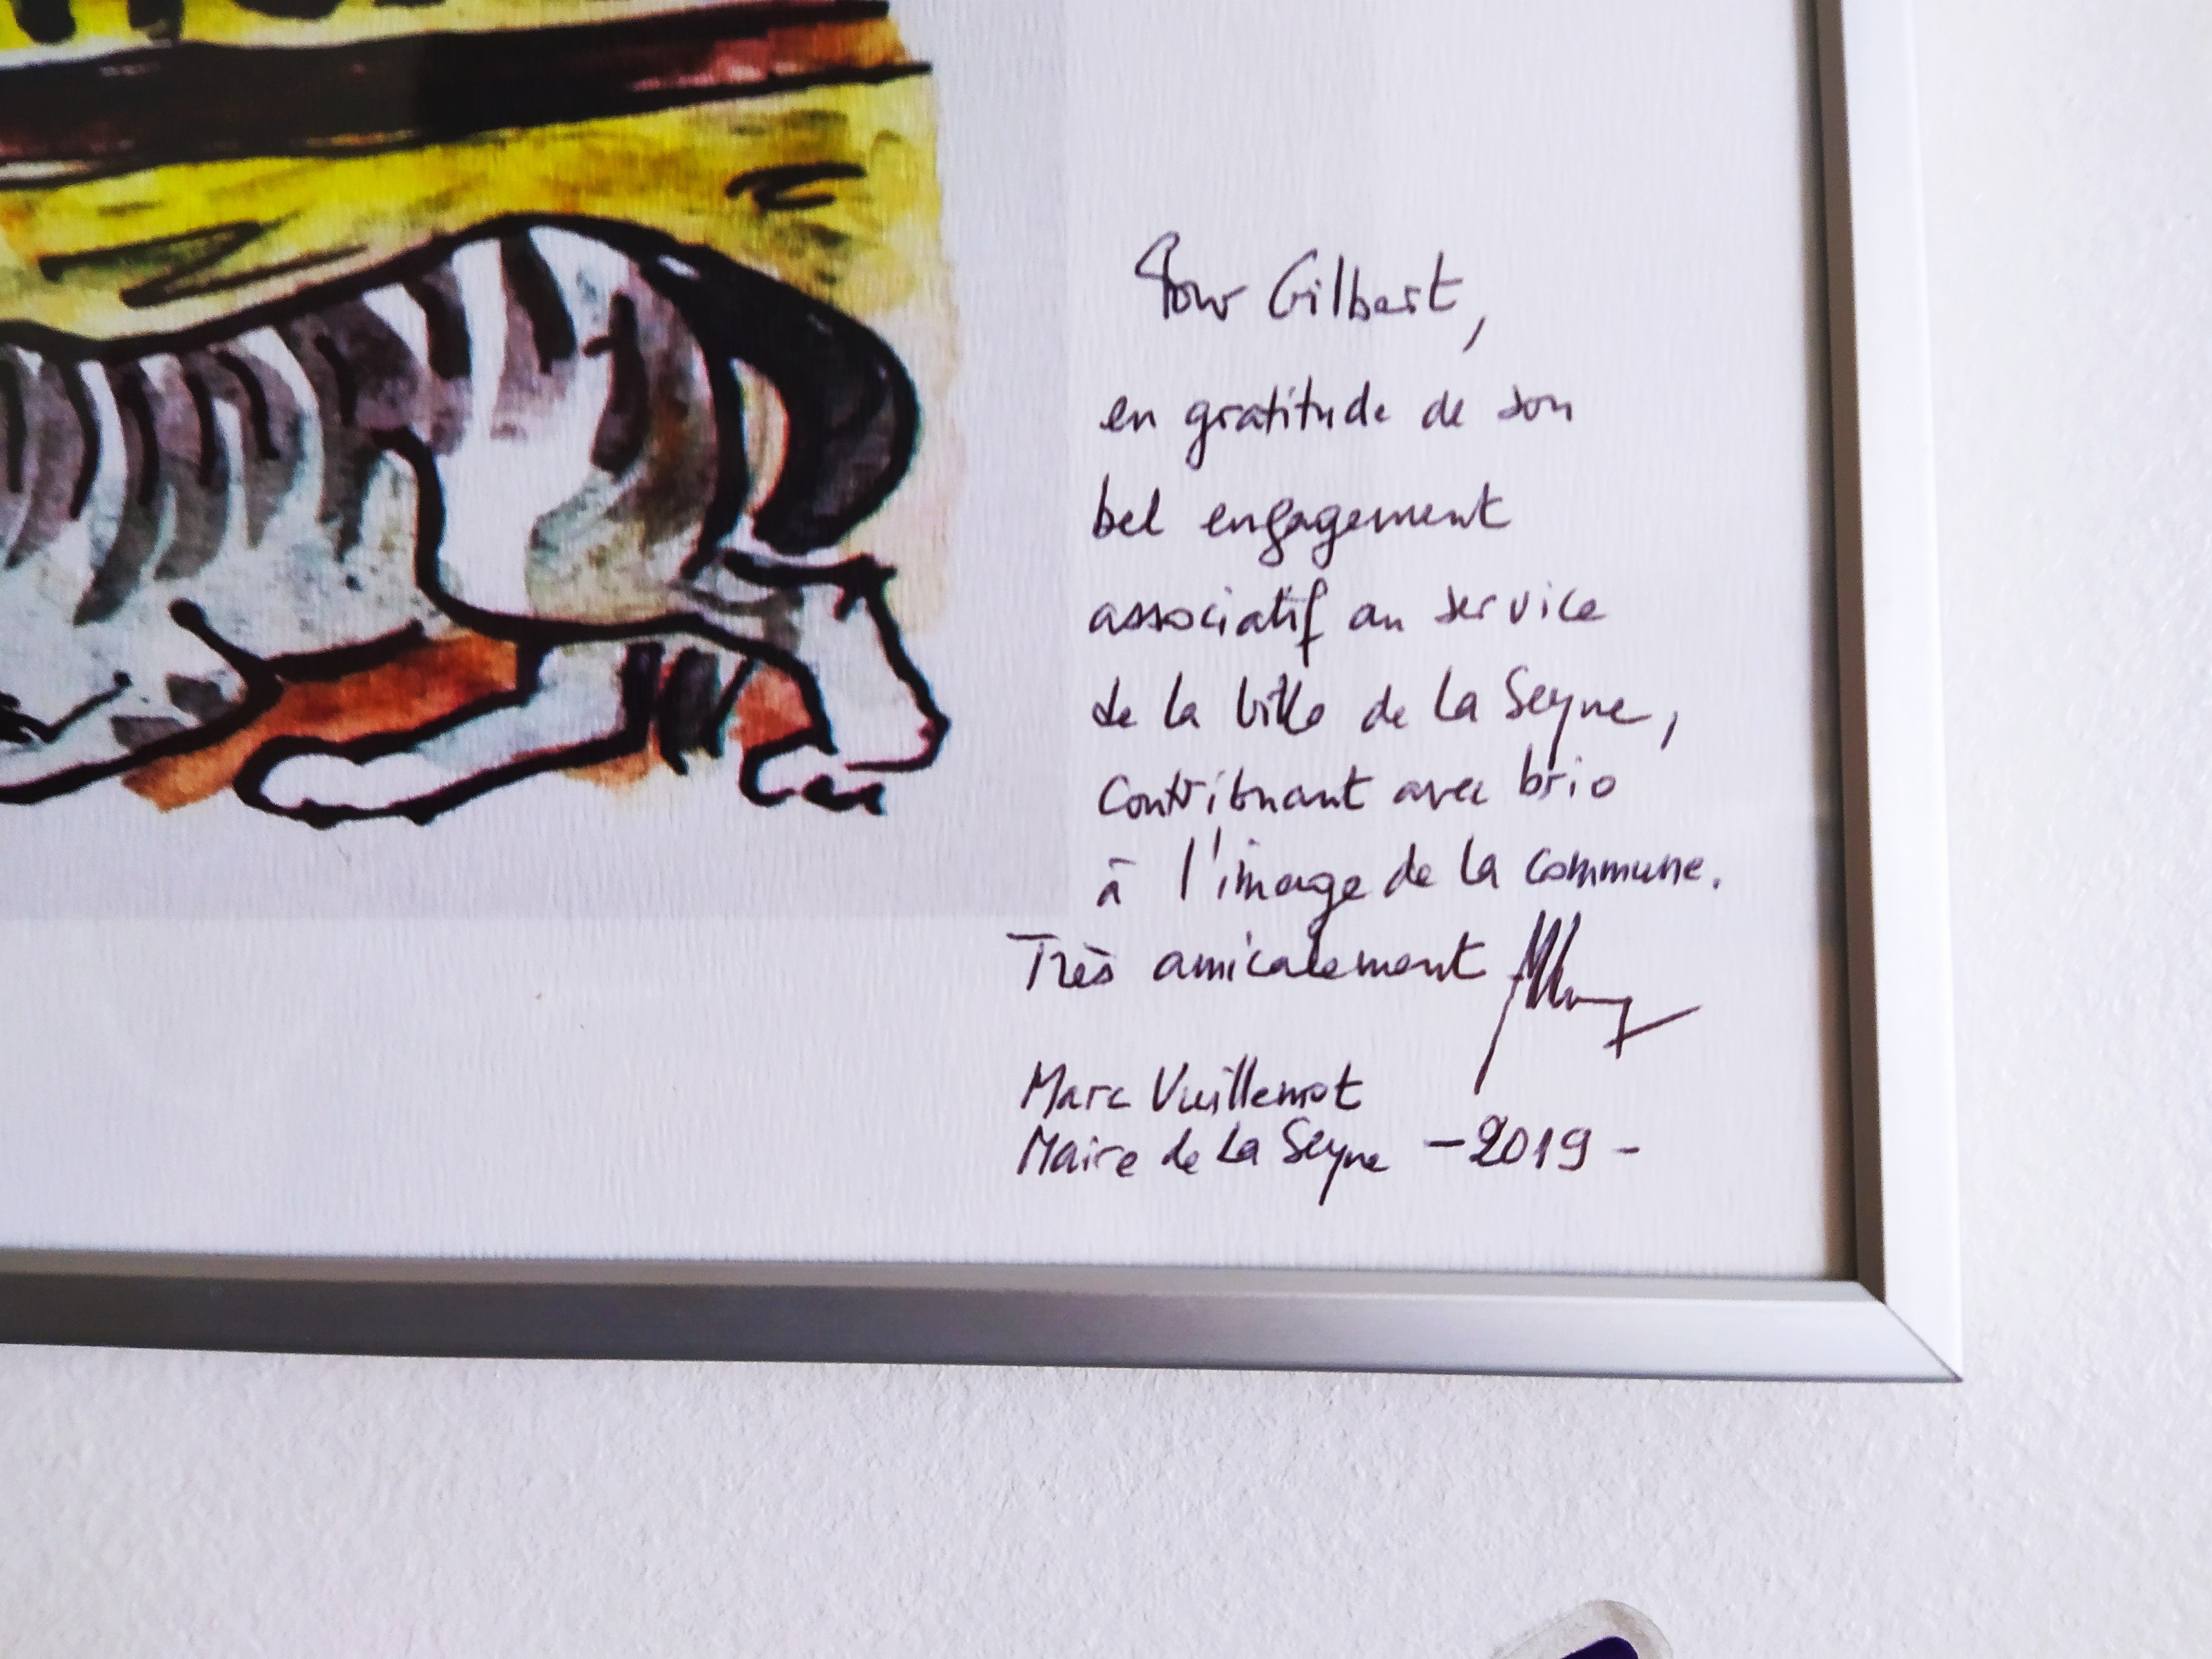 Pour Gilbert,
en gratitude de son
bel engagement
associatif au service
de la ville de La Seyne,
contribuant avec brio
à l'image de la commune.
Très amicalement
Marc Vuillemot
Maire de La Seyne - 2019 -